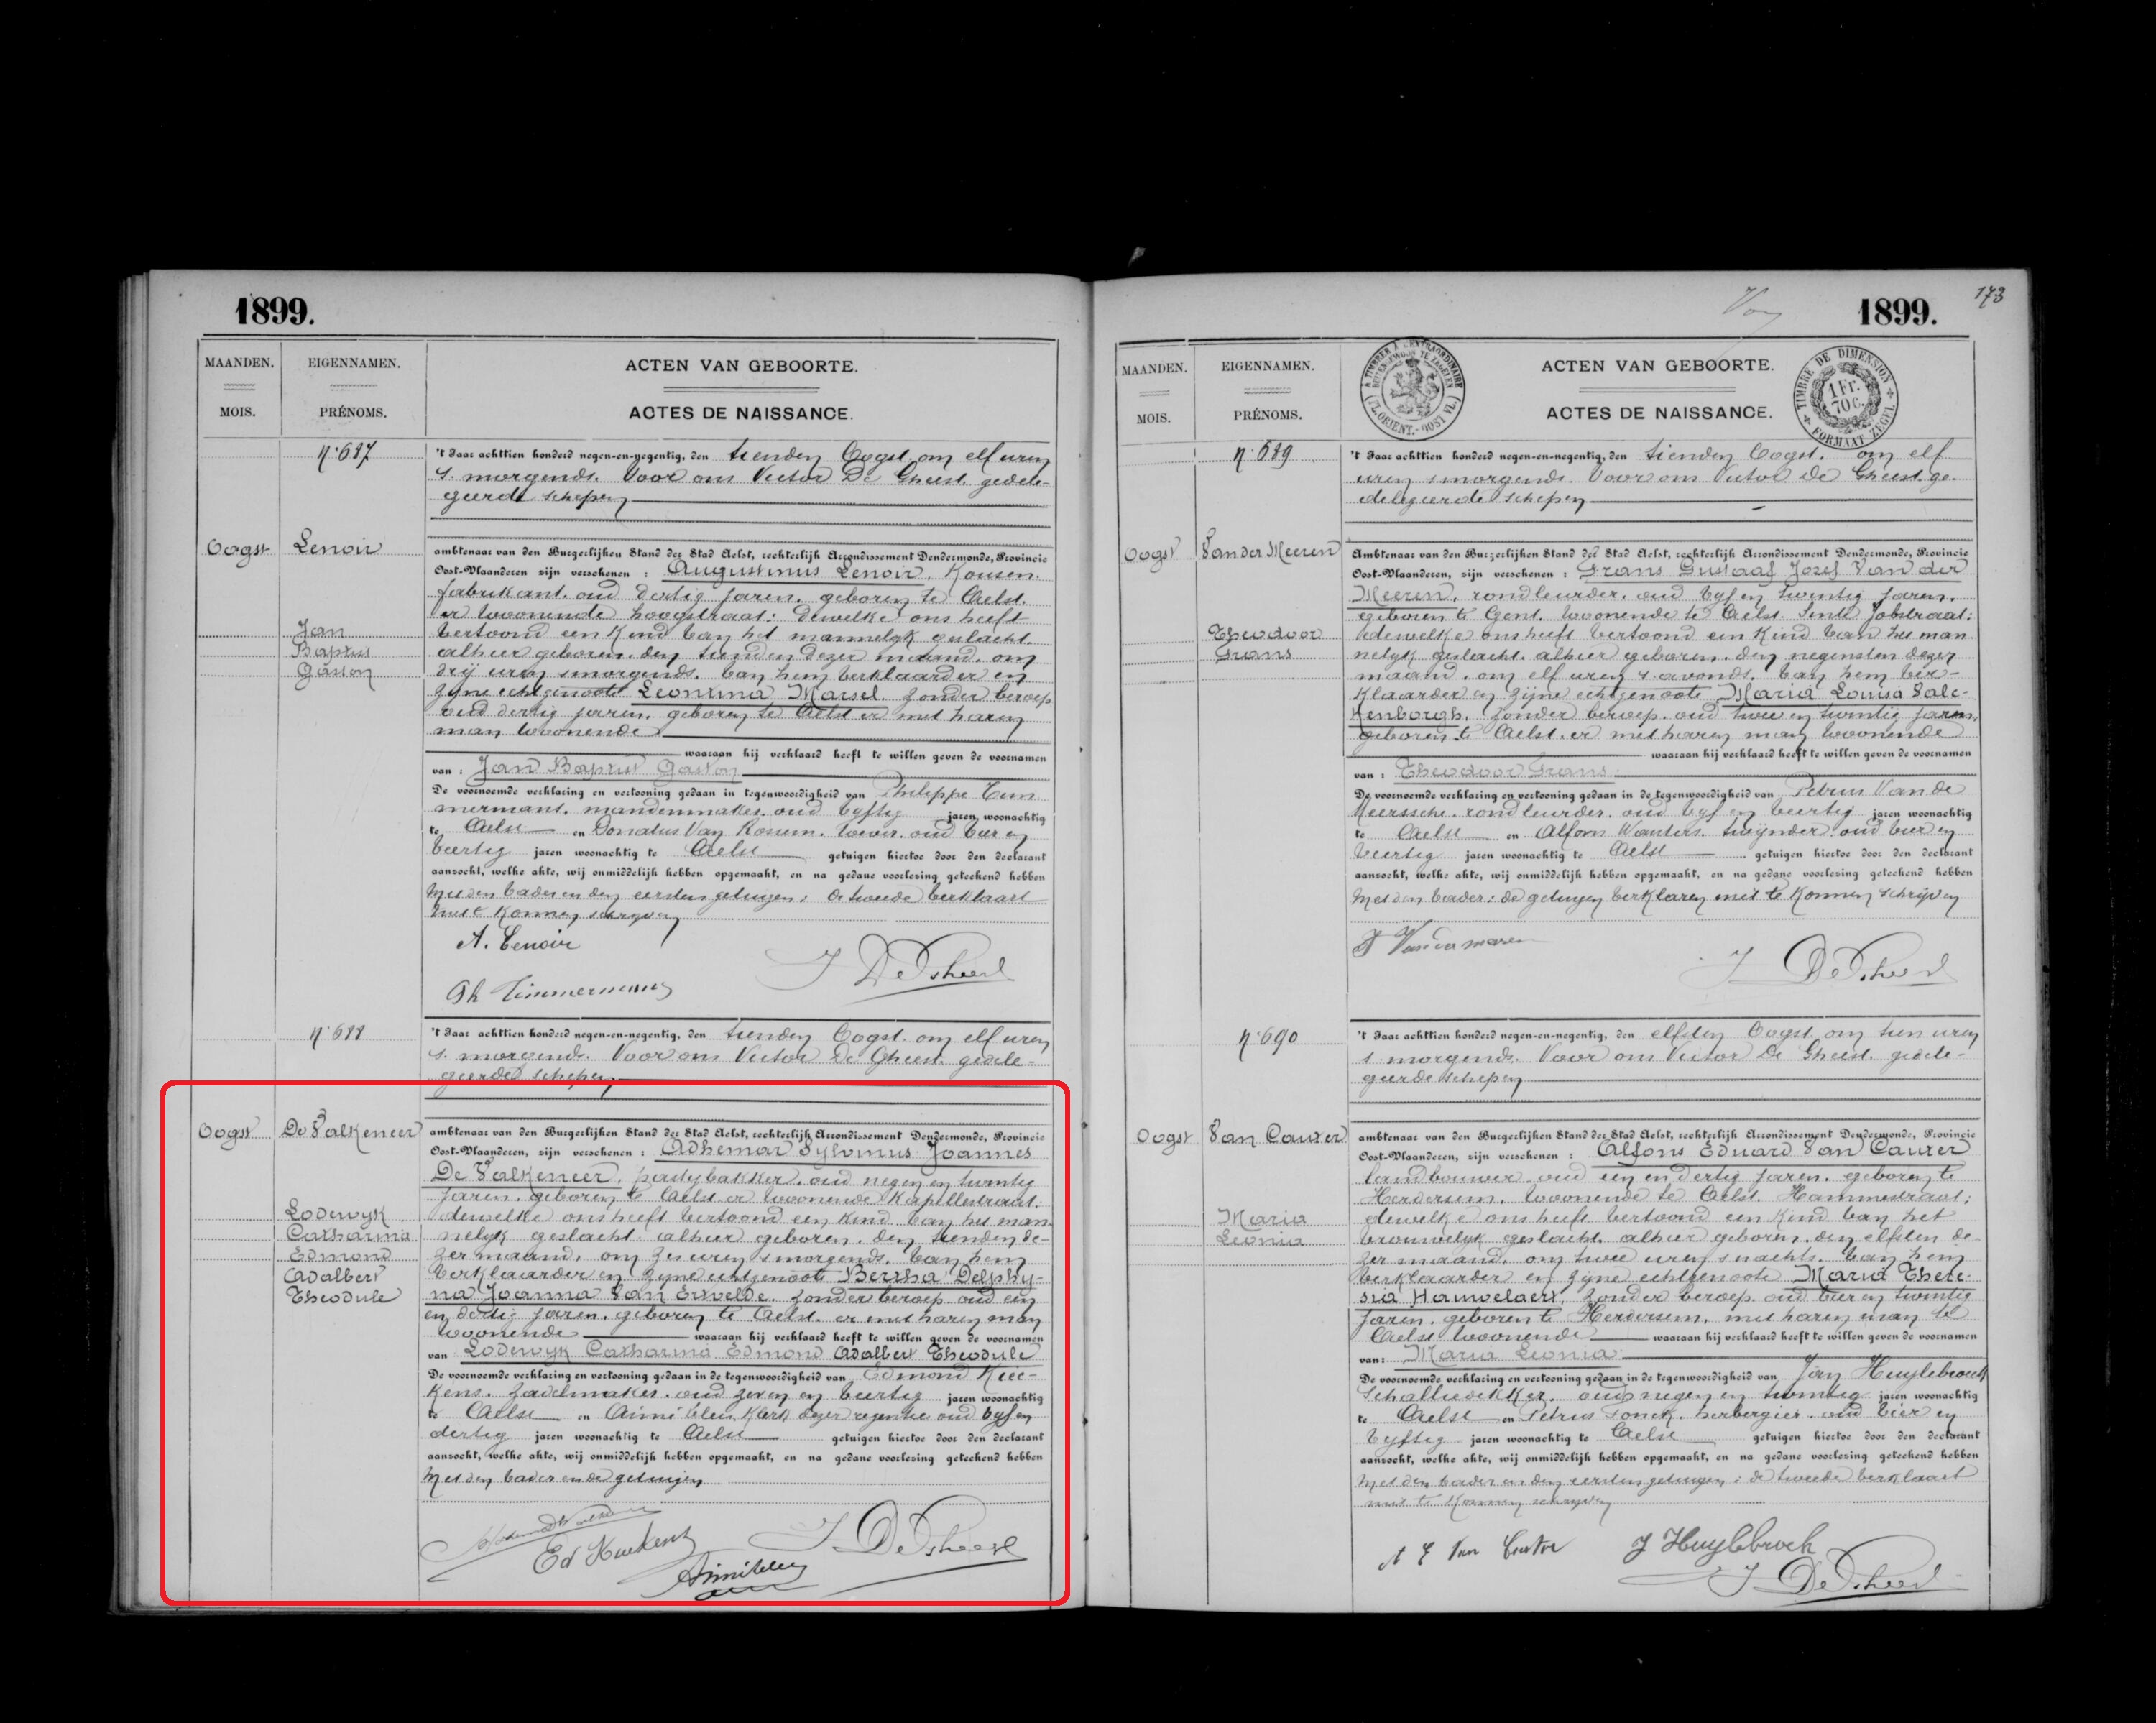 1899.
MAANDEN.
MOIS.
EIGENNAMEN.
PRÉNOMS.
ACTEN VAN GEBOORTE.
ACTES DE NAISSANCE.
n° 687
't Jaar achttien honderd negen-en-negentig, den tienden Oogst om elf uren
s morgends. Voor ons Victor De Gheest gedele-
geerde schepen
Oogst
Lenoir
Jan
Baptist
Gaston
ambtenaar van den Burgerlijken Stand der Stad Aelst, rechterlijk Arrondissement Dendermonde, Provincie
Oost-Vlaanderen zijn verschenen : Augustinus Lenoir. Kousen-
fabrikant. oud dertig jaren. geboren te Aelst.
er woonende hoogstraat: dewelke ons heeft
vertoond een kind van het mannelyk geslacht.
alhier geboren. den tienden dezer maand. om
drij uren smorgends. van hem verklaarder en
zyne echtgenoote Leontina Marsel. zonder beroep
oud dertig jaren. geboren te Aelst er met haren
man woonende
waaraan hij verklaard heeft te willen geven de voornamen
van : Jan Baptist Gaston
De voornoemde verklaring en vertooning gedaan in tegenwoordigheid van Philippe Tim-
mermans. mandenmaker. oud vyftig jaren, woonachtig
te Aelst en Donatus Van Rossem. wever. oud vier en
veertig jaren woonachtig te Aelst getuigen hiertoe door den declarant
aanzocht, welke akte, wij onmiddelijk hebben opgemaakt, en na gedane voorlezing geteekend hebben
Met den vader en den eersten getuigen: de tweede verklaart
niet te konnen schryven
A. Lenoir
Ph Timmermans
V De Gheest
n° 688
't Jaar achttien honderd negen-en-negentig, den tienden Oogst. om elf uren
s morgends. Voor ons Victor De Gheest. gedele-
geerde schepen
Oogst
De Valkeneer
Lodewyk
Catharina
Edmond
Adalbert
Theodule
ambtenaar van den Burgerlijken Stand der Stad Aelst, rechterlijk Arrondissement Dendermonde, Provincie
Oost-Vlaanderen, zijn verschenen : Adhemar Sylvinus Joannes
De Valkeneer, pasteybakker. oud negen en twintig
jaren. geboren te Aelst er woonende Kapellestraat:
dewelke ons heeft vertoond een kind van het man-
nelyk geslacht. alhier geboren. den tienden de-
zer maand. om zes uren smorgends. van hem
verklaarder en zyne echtgenoote Bertha Delphy-
na Joanna Van Ertvelde. zonder beroep oud een
en dertig jaren. geboren te Aelst. er met haren man
woonende waaraan hij verklaard heeft te willen geven de voornamen
van Lodewyk Catharina Edmond Adalbert Theodule
De voornoemde verklaring en vertooning gedaan in de tegenwoordigheid van Edmond Kiec-
kens. zadelmaker. oud zeven en veertig jaren woonachtig
te Aelst en Aimé Eleu. klerk dezer regentie oud vyf en
dertig jaren woonachtig te Aelst getuigen hiertoe door den declarant
aanzocht, welke akte, wij onmiddelijk hebben opgemaakt, en na gedane voorlezing geteekend hebben
Met den vader en de getuigen
Ed Kieckens
V De Gheest
173
1899.
MAANDEN.
MOIS.
EIGENNAMEN.
PRÉNOMS.
ACTEN VAN GEBOORTE.
ACTES DE NAISSANCE.
(FL. ORIENT.-OOST VL.)
TIMBRE DE DIMENSION
1 Fr.
70 c.
FORMAAT ZEGEL
n° 689
't Jaar achttien honderd negen-en-negentig, den tienden Oogst. om elf
uren smorgends. Voor ons Victor De Gheest. ge-
delegeerde schepen
Oogst
Van der Meeren
Theodoor
Frans
Ambtenaar van den Burgerlijken Stand der Stad Aelst, rechterlijk Arrondissement Dendermonde, Provincie
Oost-Vlaanderen, zijn verschenen : Frans Gustaaf Jozef Van der
Meeren, rondleurder. oud vyf en twintig jaren.
geboren te Gent. woonende te Aelst. Sint Jobstraat:
dewelke ons heeft vertoond een kind van het man
nelyk geslacht. alhier geboren. den negensten dezer
maand. om elf uren s avonds. van hem ver-
klaarder en zyne echtgenoote Maria Louisa Valc-
kenborgh. zonder beroep. oud twee en twintig jaren,
geboren te Aelst. er met haren man woonende
waaraan hij verklaard heeft te willen geven de voornamen
van : Theodoor Frans
De voornoemde verklaring en vertooning gedaan in de tegenwoordigheid van Petrus Van de
Meerssche. rondleurder. oud vyf en veertig jaren woonachtig
te Aelst en Alfons Wauters. twijnder oud vier en
veertig jaren woonachtig te Aelst getuigen hiertoe door den declarant
aanzocht, welke akte, wij onmiddelijk hebben opgemaakt, en na gedane voorlezing geteekend hebben
Met den vader: de getuigen verklaren niet te konnen schrijven
V De Gheest
n° 690
't Jaar achttien honderd negen-en-negentig, den elfden Oogst. om tien uren
s morgends. Voor ons Victor De Gheest. gedele-
geerde schepen
Oogst
Van Cauter
Maria
Leonia
ambtenaar van den Burgerlijken Stand der Stad Aelst, rechterlijk Arrondissement Dendermonde, Provincie
Oost-Vlaanderen, zijn verschenen : Alfons Eduard Van Cauter
landbouwer oud een en dertig jaren. geboren te
Herdersem. woonende te Aelst. Hammestraat:
dewelke ons heeft vertoond een kind van het
vrouwelyk geslacht. alhier geboren. den elfden de-
zer maand. om twee uren snachts. van hem
verklaarder en zyne echtgenoote Maria There-
sia Hauwelaert. zonder beroep. oud vier en twintig
jaren. geboren te Herdersem, met haren man te
Aelst woonende waaraan hij verklaard heeft te willen geven de voornamen
van: Maria Leonia
De voornoemde verklaring en vertooning gedaan in de tegenwoordigheid van Jan Huylebroeck
Schaliedekker. oud negen en twintig jaren woonachtig
te Aelst en Petrus Fonck. herbergier. oud vier en
vyftig jaren woonachtig te Aelst getuigen hiertoe door den declarant
aanzocht, welke akte, wij onmiddelijk hebben opgemaakt, en na gedane voorlezing geteekend hebben
Met den vader en den eersten getuigen: de tweede verklaart
niet te konnen schryven
J Huylebroeck
V De Gheest